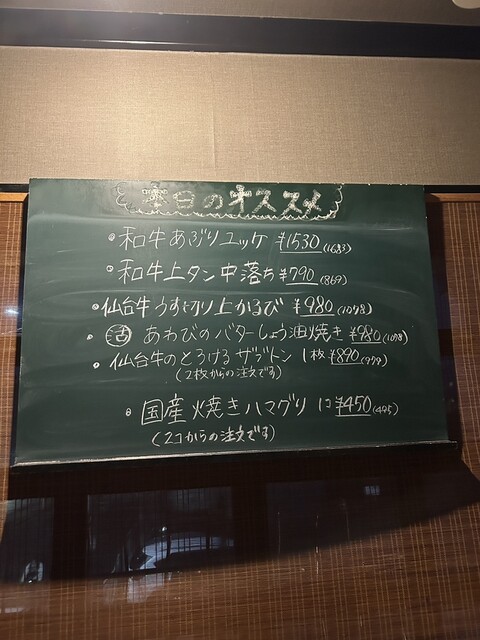 本日のオススメ
和牛あぶりユッケ ¥1530(1683)
和牛上タン中落ち ¥790(869)
仙台牛うす切り上かるび ¥980(1078)
活 あわびのバターしょう油焼き ¥980(1078)
仙台牛のとろけるザブトン 1枚¥890(979)
(2枚からの注文です)
国産焼きハマグリ 1コ¥450(495)
(2コからの注文です)